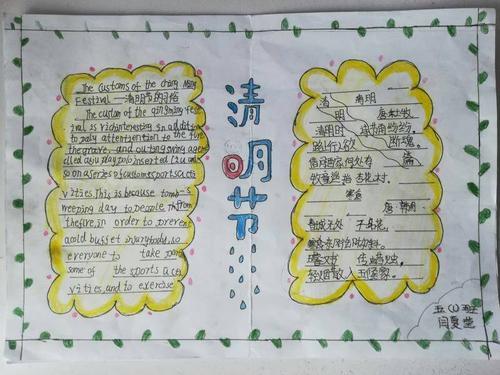 The customs of the ching Ming
Festival 一清明节的习俗
The custom of the qingming fes
tival is rich interesting in addit
to pay attention to the
the grave, and outing swing
so on a series of customs sports acti
vities. This is because tomb-s
weeping day to people
the fire, in order to prevent
cold buffet injury body, so
everyone to take part
some of the sports acti
vities, and to exercise
清明节
清明
清明
唐杜牧
清明时 节雨纷纷,
路上行人欲 断魂。
篇
借问酒家何处有
牧童遥指杏花村。
寒食
唐·韩翃
春城无处 不飞花,
寒食东风御柳斜。
日暮汉宫 传蜡烛,
轻烟散入五侯家。
五(1)班
闫